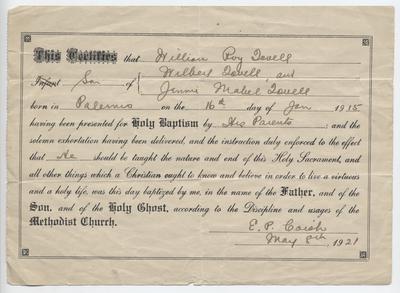 This Certifies that William Roy Tovell
Infant Son of { Wilbert Tovell, and
Jennie Mabel Tovell
born in Palermo on the 16th day of Jan 1915
having been presented for Holy Baptism by His Parents; and the
solemn exhortation having been delivered, and the instruction duly enforced to the effect
that He should be taught the nature and end of this Holy Sacrament, and
all other things which a Christian ought to know and believe in order to live a virtuous
and a holy life, was this day baptized by me, in the name of the Father, and of the
Son, and of the Holy Ghost, according to the Discipline and usages of the
Methodist Church.
E. P.
May 8th, 1921